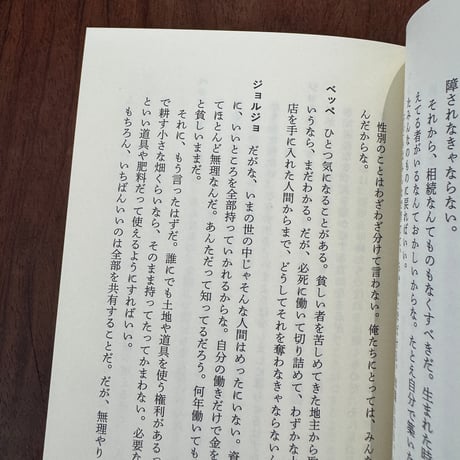 障されなきゃならない。
それから、相続なんてものもなくすべきだ。生まれた時
えてる者がいるなんておかしいからな。たとえ自分で築いた
たみんなのものに戻ればいい。
性別のことはわざわざ分けて言わない。俺たちにとっては、みんな
んだからな。
ベッペ　ひとつ気になることがある。貧しい者を苦しめてきた地主から
いうなら、まだわかる。だが、必死に働いて切り詰めて、わずかな
店を手に入れた人間からまで、どうしてそれを奪わなきゃならないん
ジョルジョ　だがな、いまの世の中じゃそんな人間はめったにいない。資
に、いいところを全部持っていかれるからな。自分の働きだけで金を
てほとんど無理なんだ。あんただって知ってるだろう。何年働いても
と貧しいままだ。
それに、もう言ったはずだ。誰にでも土地や道具を使う権利がある
で耕す小さな畑くらいなら、そのまま持ってたってかまわない。必要な
といい道具や肥料だって使えるようにすればいい。
もちろん、いちばんいいのは全部を共有することだ。だが、無理やり